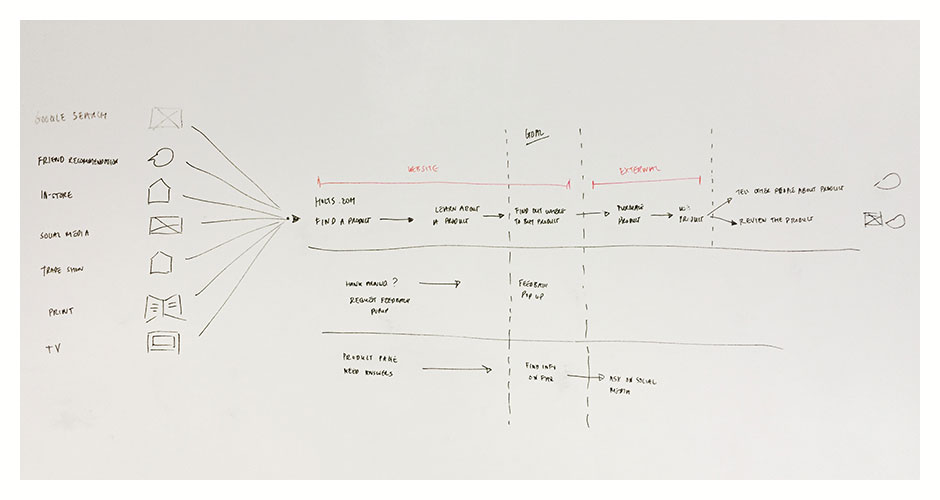 GOOGLE SEARCH
FRIEND RECOMMENDATION
IN-STORE
SOCIAL MEDIA
TRADE SHOW
PRINT
TV
WEBSITE
GOAL
EXTERNAL
HOLTS.COM
FIND A PRODUCT
LEARN ABOUT
A PRODUCT
FIND OUT WHERE
TO BUY PRODUCT
PURCHASE
PRODUCT
USE
PRODUCT
TELL OTHER PEOPLE ABOUT PRODUCT
REVIEW THE PRODUCT
REQUEST FEEDBACK
POPUP
FEEDBACK
POP UP
PRODUCT PAGE
NEED ANSWERS
FIND INFO
ON
ASK ON SOCIAL
MEDIA